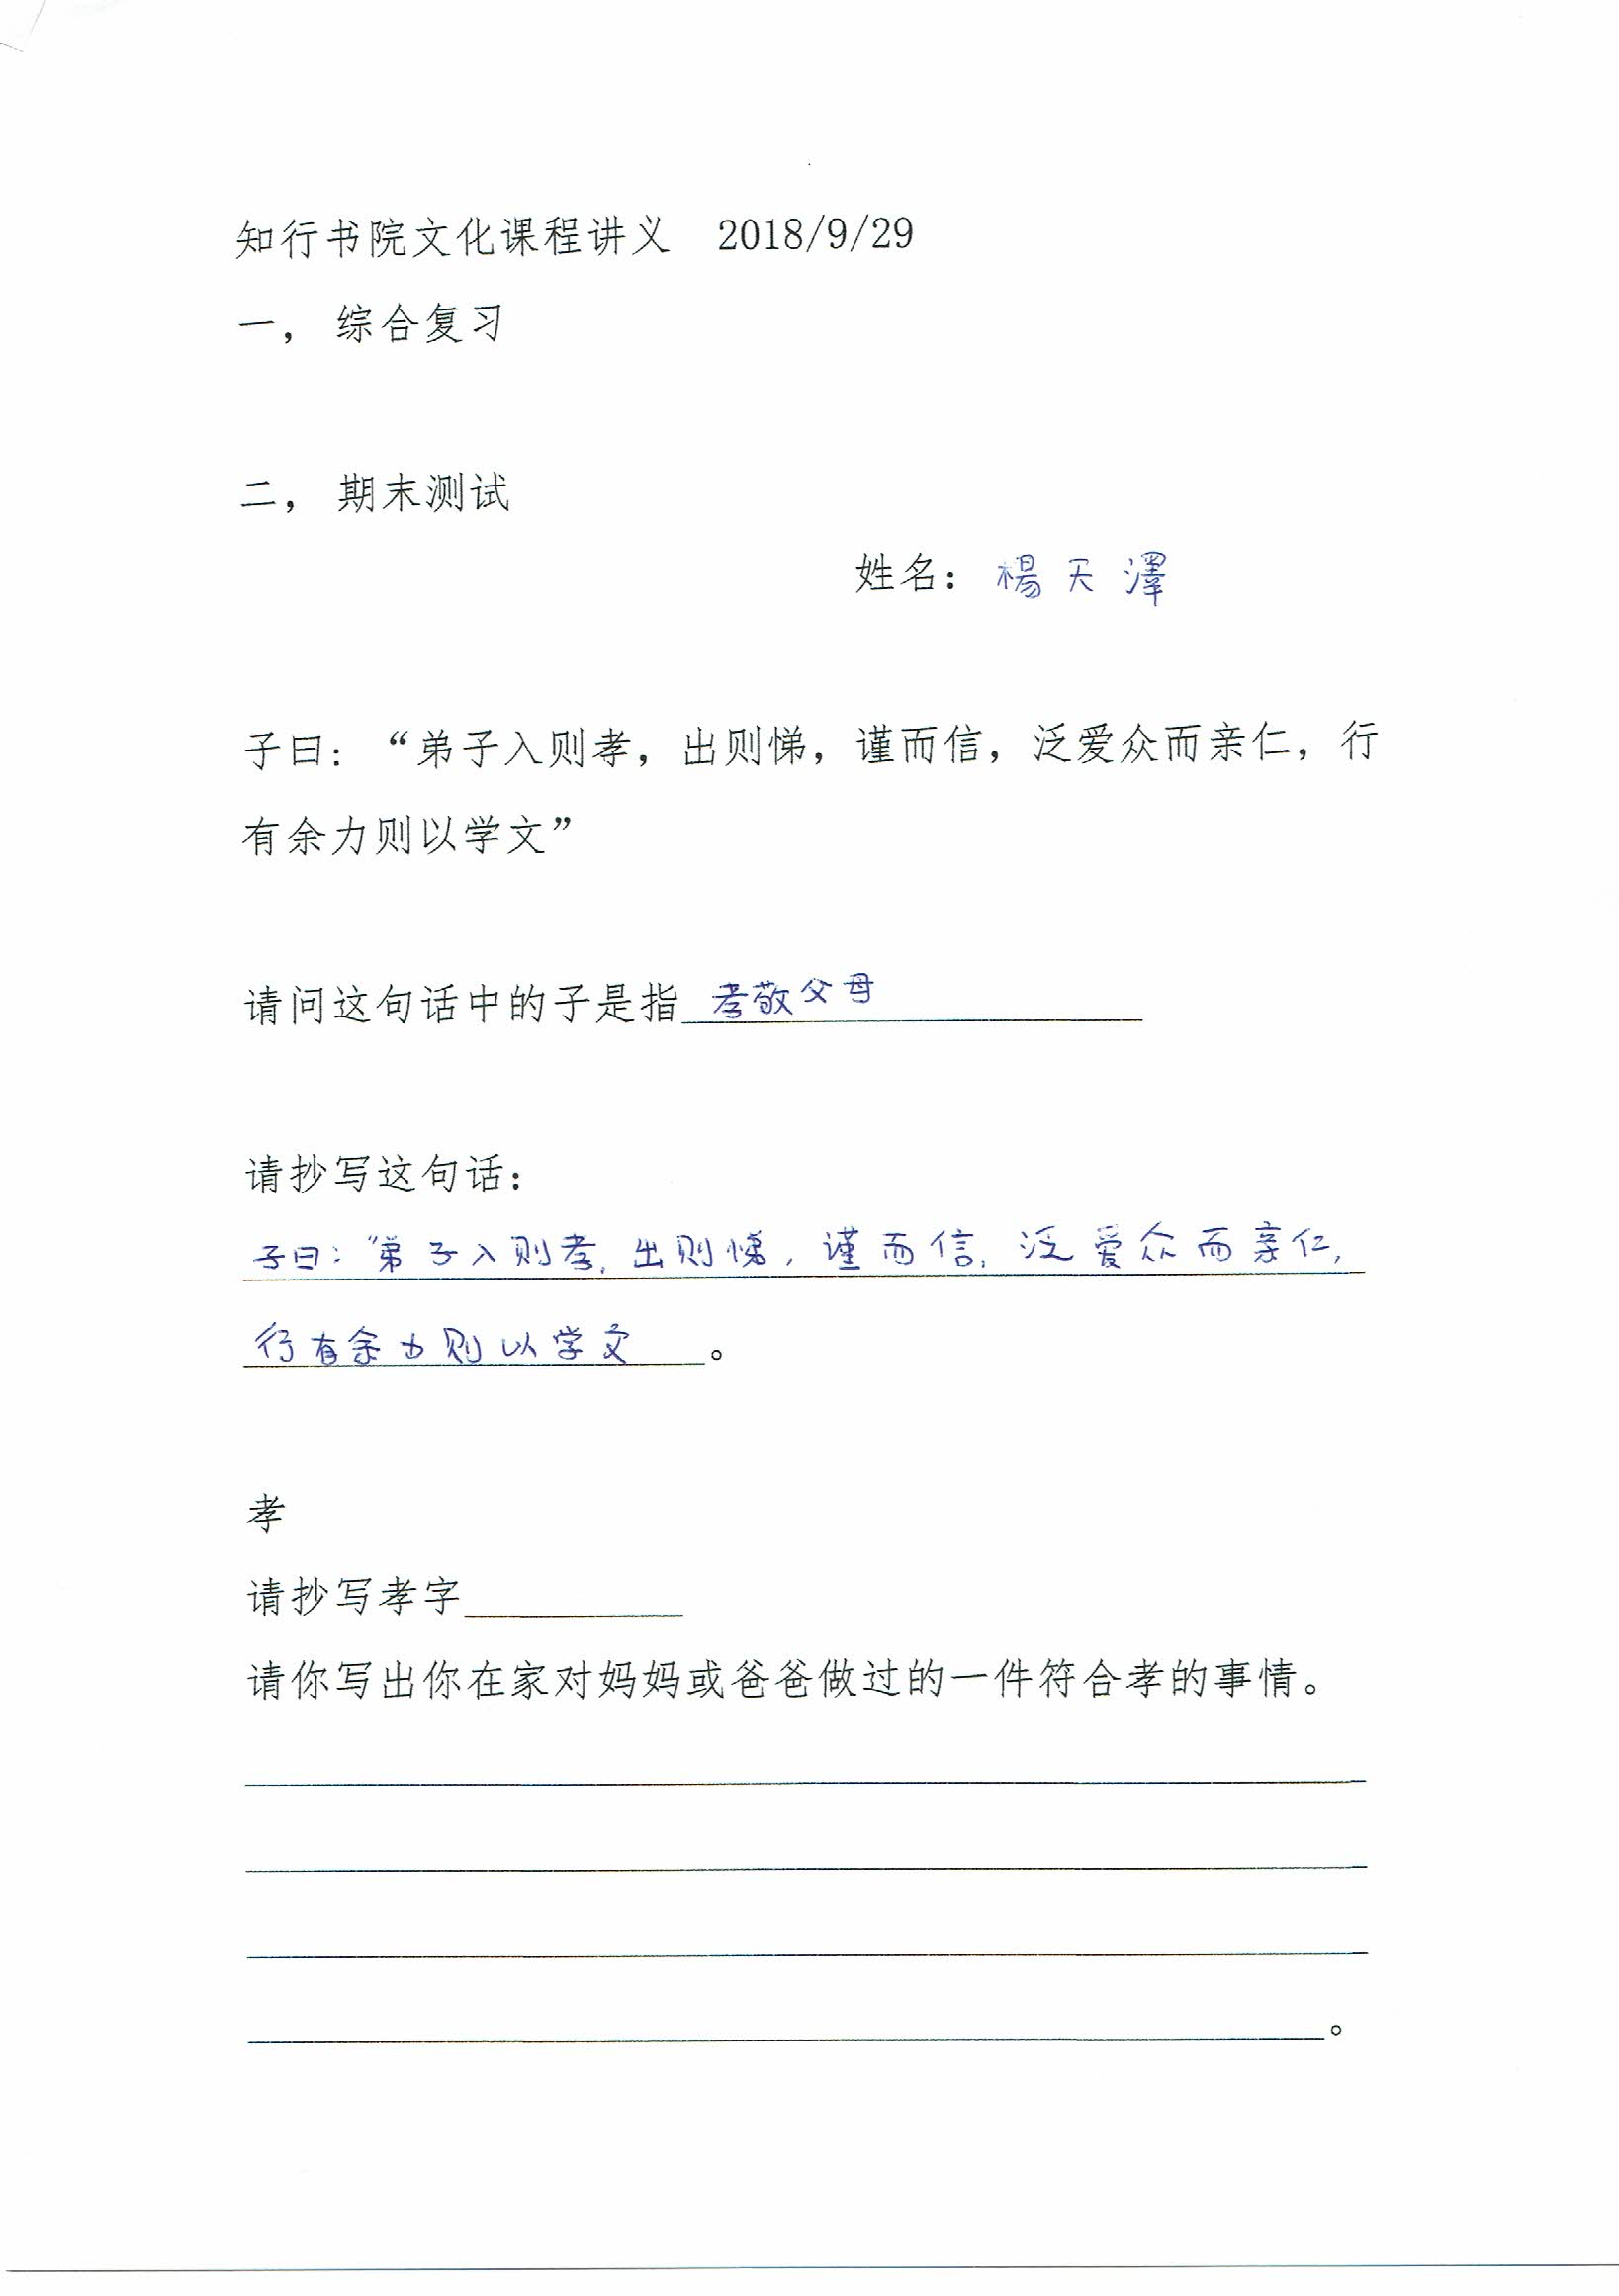 知行书院文化课程讲义 2018/9/29
一， 综合复习
二， 期末测试
姓名： 楊天澤
子曰：“弟子入则孝，出则悌，谨而信，泛爱众而亲仁，行
有余力则以学文”
请问这句话中的子是指 孝敬父母
请抄写这句话：
子曰：“弟子入则孝，出则悌，谨而信，泛爱众而亲仁，
行有余力则以学文 。
孝
请抄写孝字
请你写出你在家对妈妈或爸爸做过的一件符合孝的事情。
。